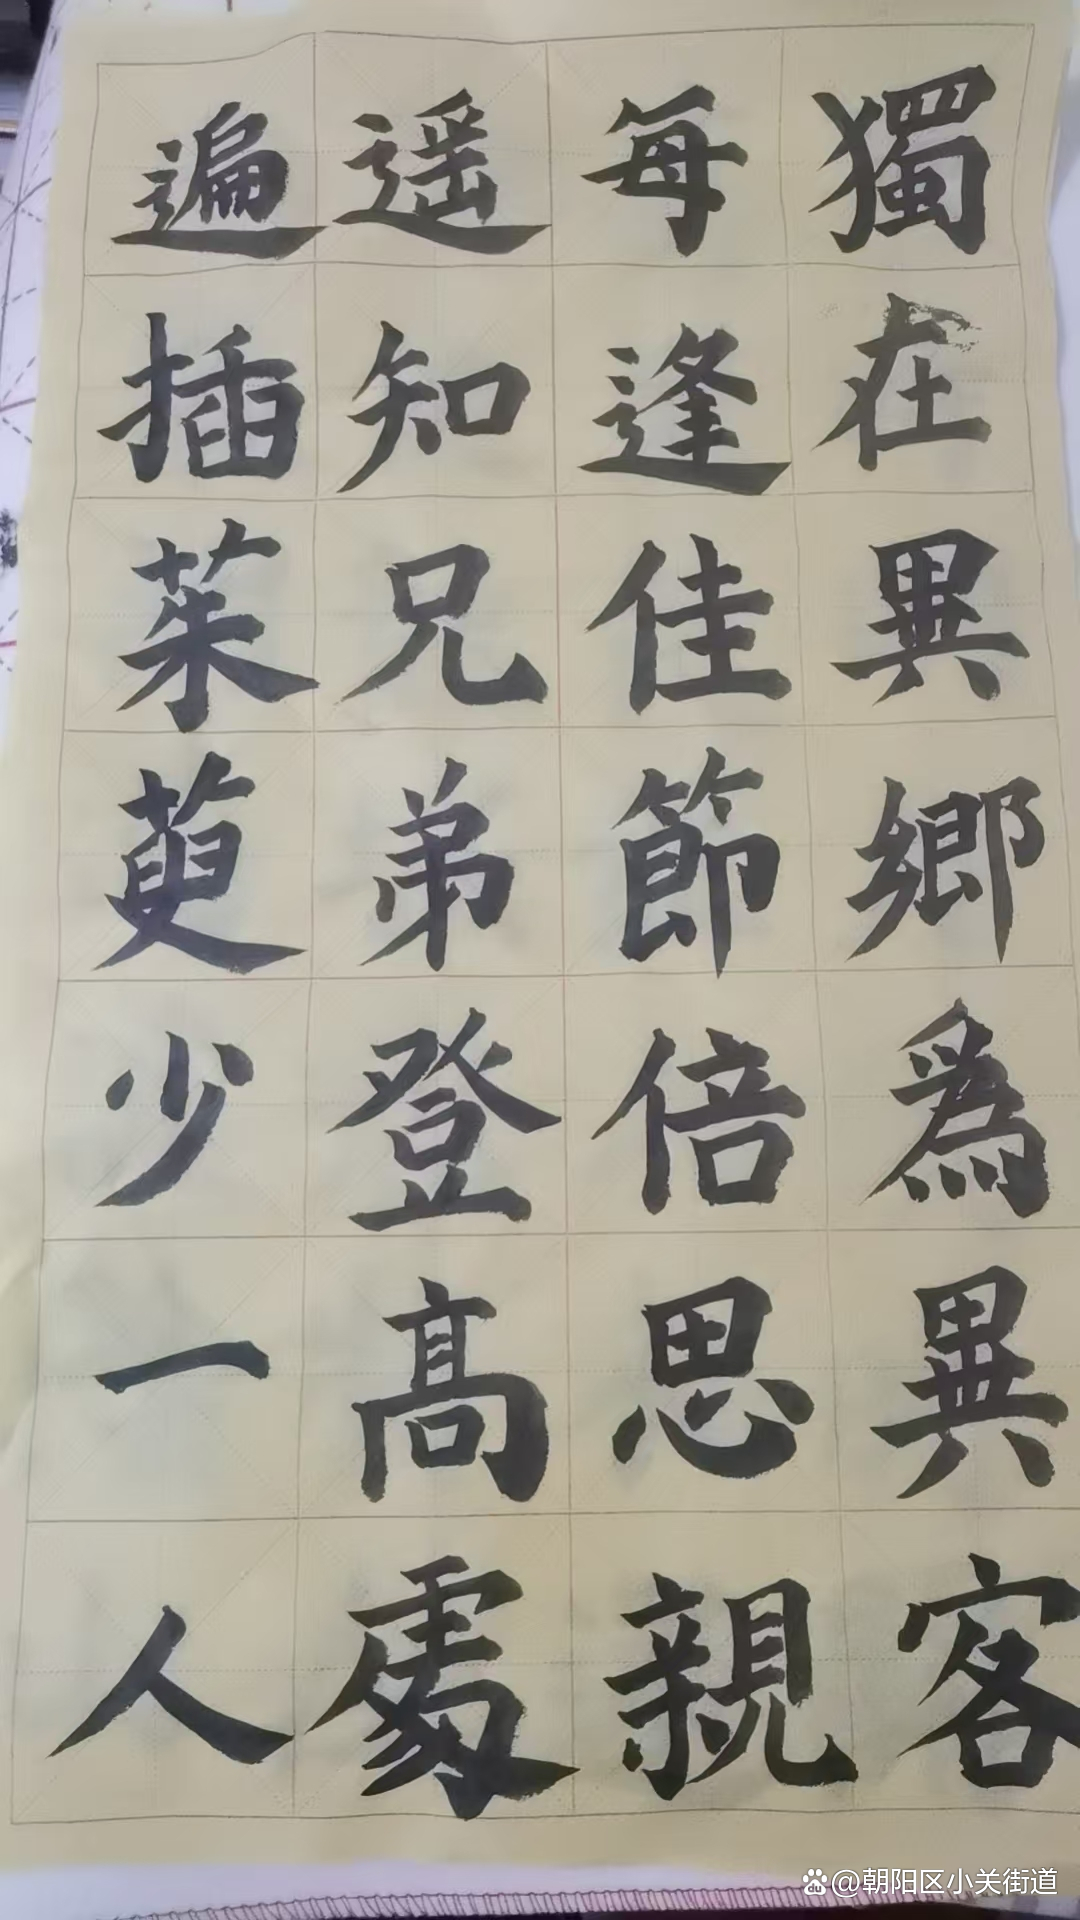 獨在異鄉爲異客
每逢佳節倍思親
遥知兄弟登高處
遍插茱萸少一人
@朝阳区小关街道